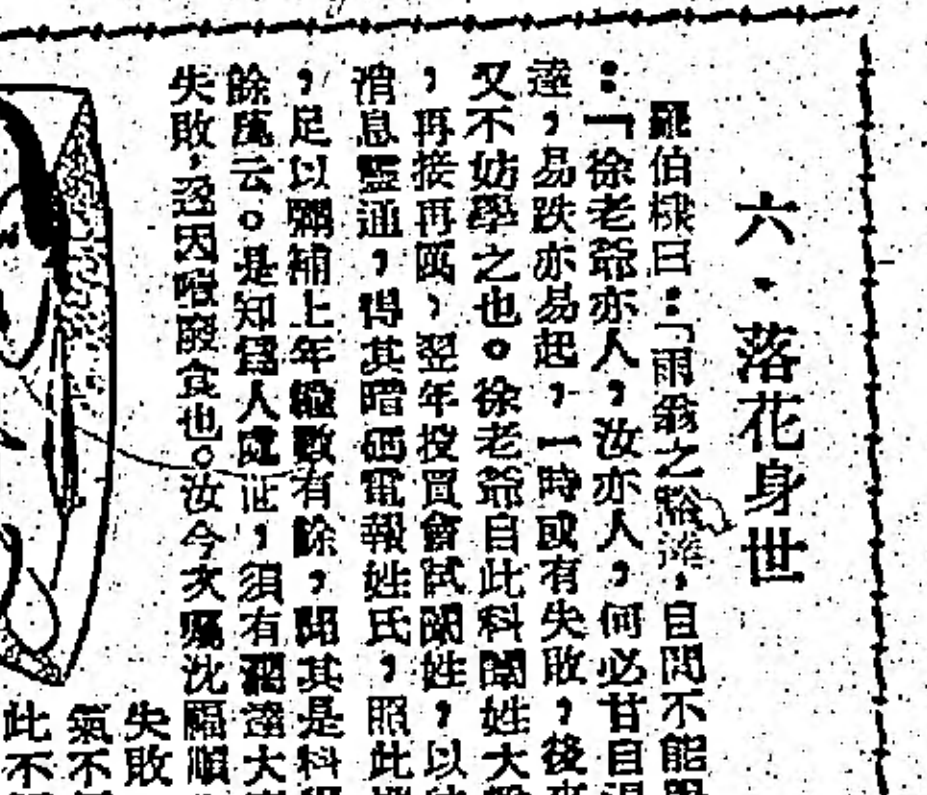 六·落花身世
羅伯棣曰：「雨翁之豁達，自問不能
：「徐老爺亦人，汝亦人，何必甘自
達，易跌亦易起，一時或有失敗，後來
又不妨學之也。徐老爺自此科闈姓大
，再接再厲，翌年投買會試闈姓，以
消息靈通，得其暗碼電報姓氏，照此
，足以彌補上年虧數有餘，聞其是科
餘萬云。是知為人處世，須有豁達大
失敗，遂因噎廢食也。汝今次囑沈順
失敗
氣不
此不